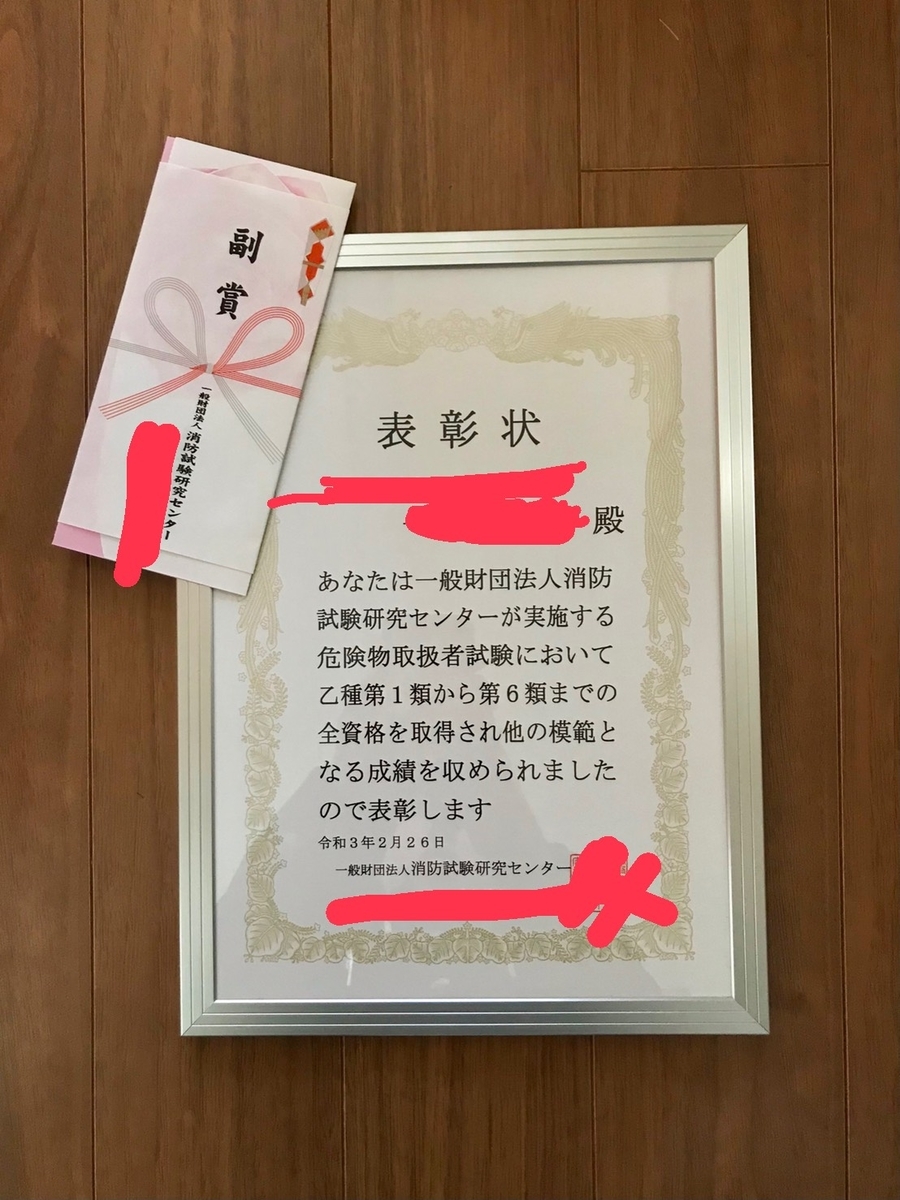 副賞
一般財団法人 消防試験研究センター
表彰状
殿
あなたは一般財団法人消防
試験研究センターが実施する
危険物取扱者試験において
乙種第１類から第６類までの
全資格を取得され他の模範と
なる成績を収められました
ので表彰します
令和３年２月２６日
一般財団法人消防試験研究センター